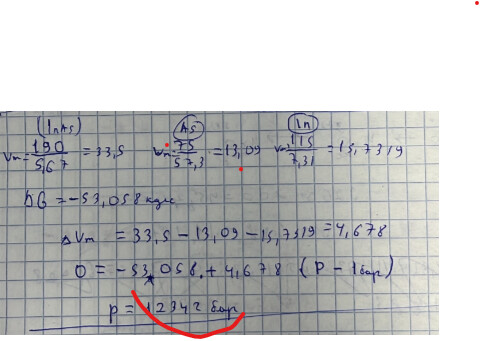 (InAs) As In
Vm = 190/5,67 = 33,5 Vm = 75/57,3 = 13,09 Vm = 115/7,31 = 15,7319
ΔG = -53,058 кДж
ΔVm = 33,5 - 13,09 - 15,7319 = 4,678
0 = -53,058 + 4,678 (P - 1бар)
p = 12342 бар